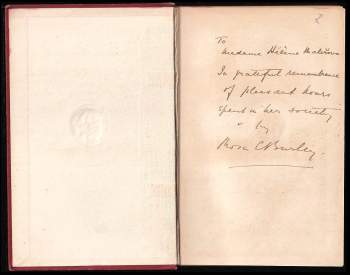 2
To
Madame Hélène
In grateful remembrance
of pleasant hours
spent in her society
by
Rosa C Burley.